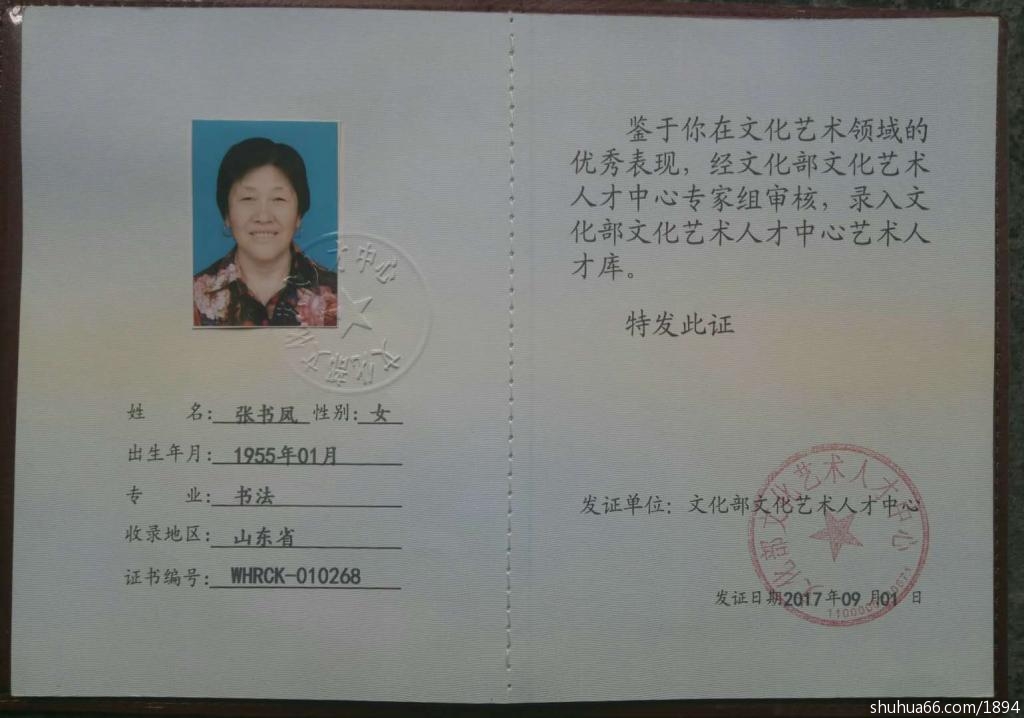 姓 名：张书凤 性别：女
出生年月：1955年01月
专 业：书法
收录地区：山东省
证书编号：WHRCK-010268
鉴于你在文化艺术领域的
优秀表现，经文化部文化艺术
人才中心专家组审核，录入文
化部文化艺术人才中心艺术人
才库。
特发此证
发证单位：文化部文化艺术人才中心
发证日期2017年09月01日
文化部文化艺术人才中心
shuhua66.com/1894